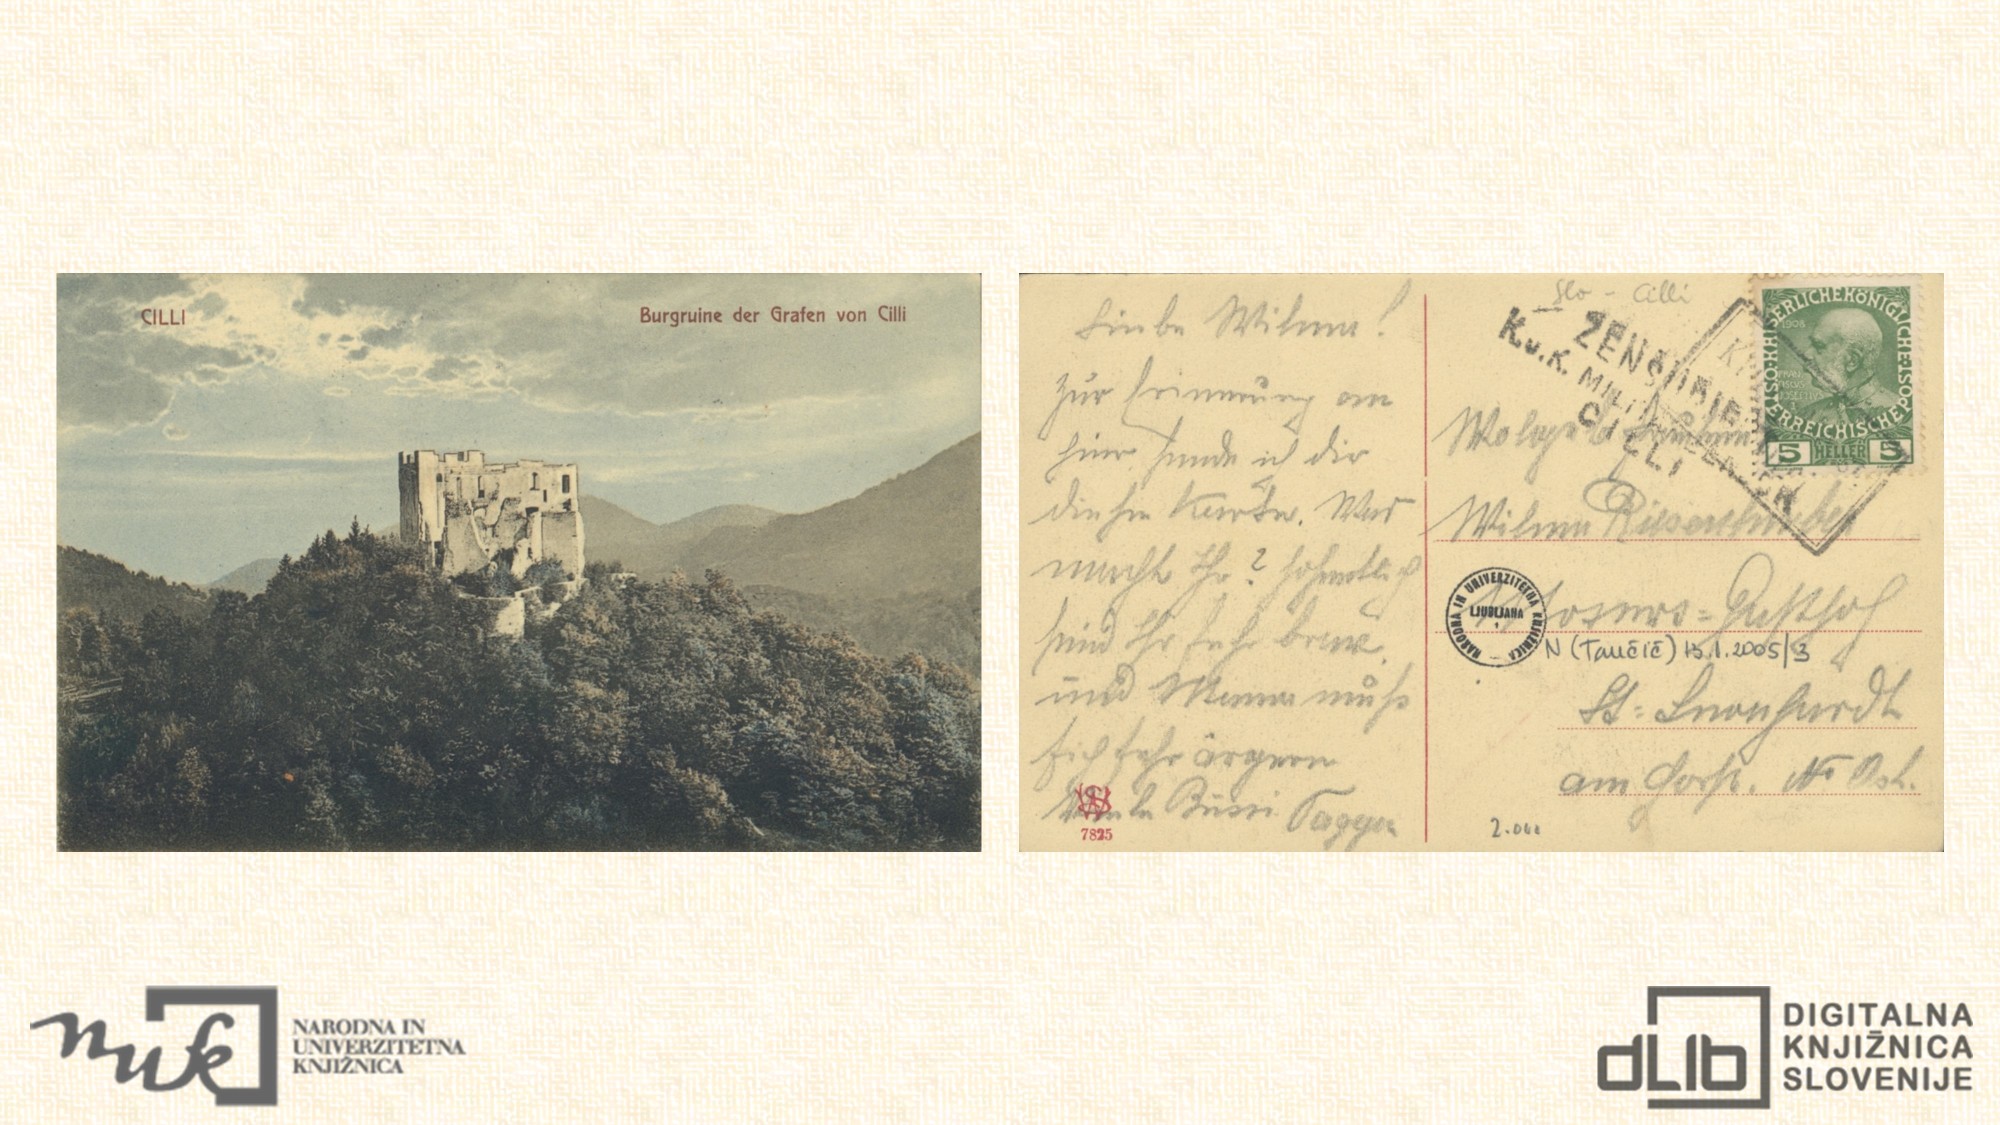 CILLI
Burgruine der Grafen von Cilli
Liebe Wilma!
Zur Erinnerung von
hier sende ich dir
diese Karte. Was
macht Ihr? hoffentlich
seid Ihr sehr brav.
und Mama muß
sich sehr ärgern
Bussi
7825
Slo - Cilli
ZENSURIERT
K.u.K. MILITÄRZENSUR
CILLI
KAISERLICHE KÖNIGLICHE ÖSTERREICHISCHE POST
1908
5 HELLER 5
Wohlgeb. Fräulein
Wilma
Gasthof
St. Leonhardt
am Forst. N. Öst.
NARODNA IN UNIVERZITETNA KNJIŽNICA
LJUBLJANA
N (Taučič) 13.1.2005/3
2.000
nuk
NARODNA IN
UNIVERZITETNA
KNJIŽNICA
dLib
DIGITALNA
KNJIŽNICA
SLOVENIJE